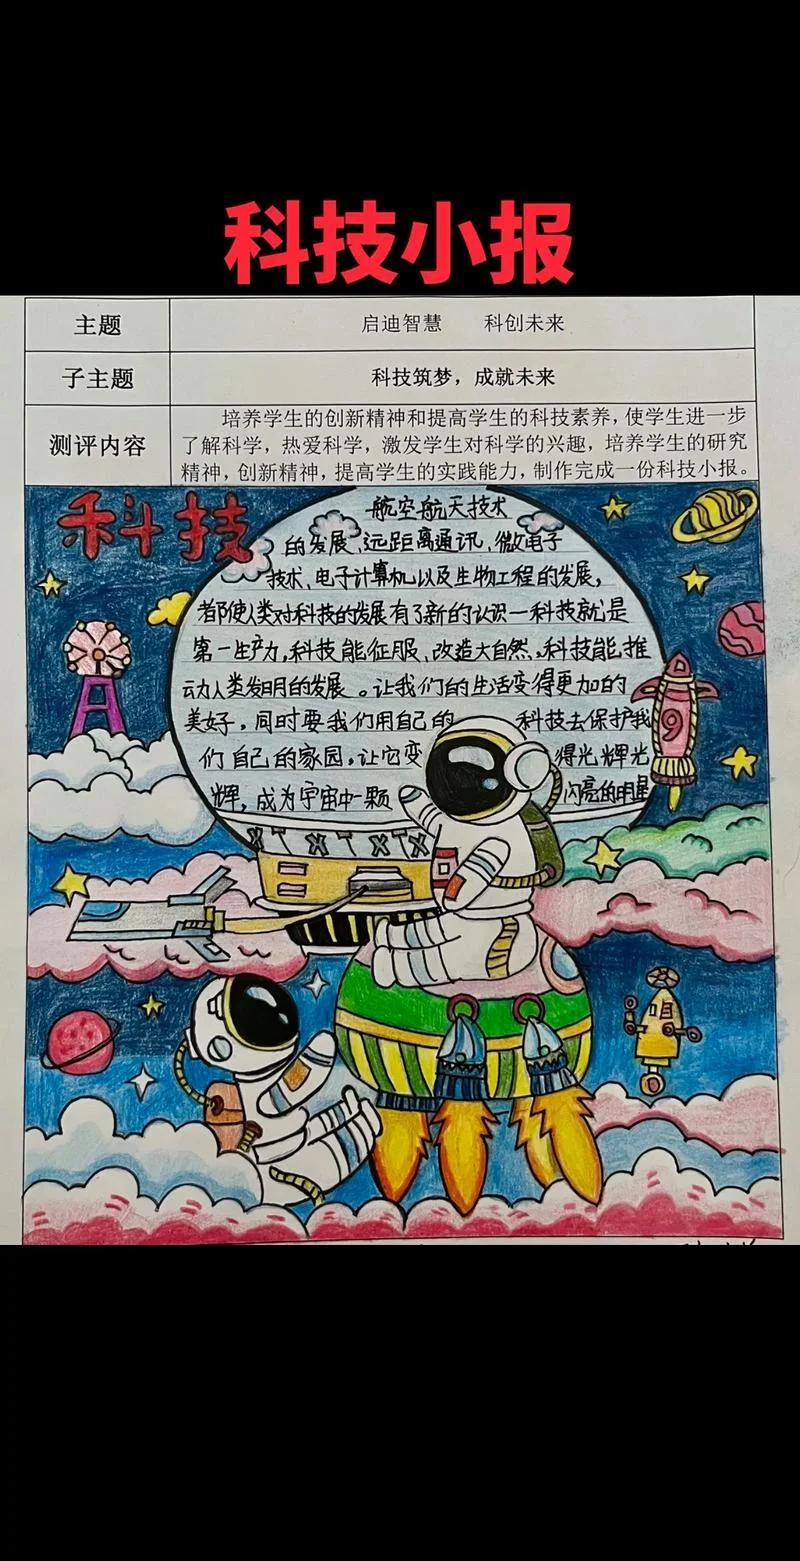 科技小报
主题
启迪智慧 科创未来
子主题
科技筑梦，成就未来
测评内容
培养学生的创新精神和提高学生的科技素养，使学生进一步
了解科学，热爱科学，激发学生对科学的兴趣，培养学生的研究
精神，创新精神，提高学生的实践能力，制作完成一份科技小报。
科技
航空航天技术
的发展、远距离通讯、微电子
技术、电子计算机以及生物工程的发展，
都使人类对科技的发展有了新的认识一科技就是
第一生产力，科技能征服、改造大自然。科技能推
动人类发明的发展。让我们的生活变得更加的
美好，同时要我们用自己的 科技去保护我
们自己的家园，让它变 得光辉光
辉，成为宇宙中一颗 闪亮的明星
9